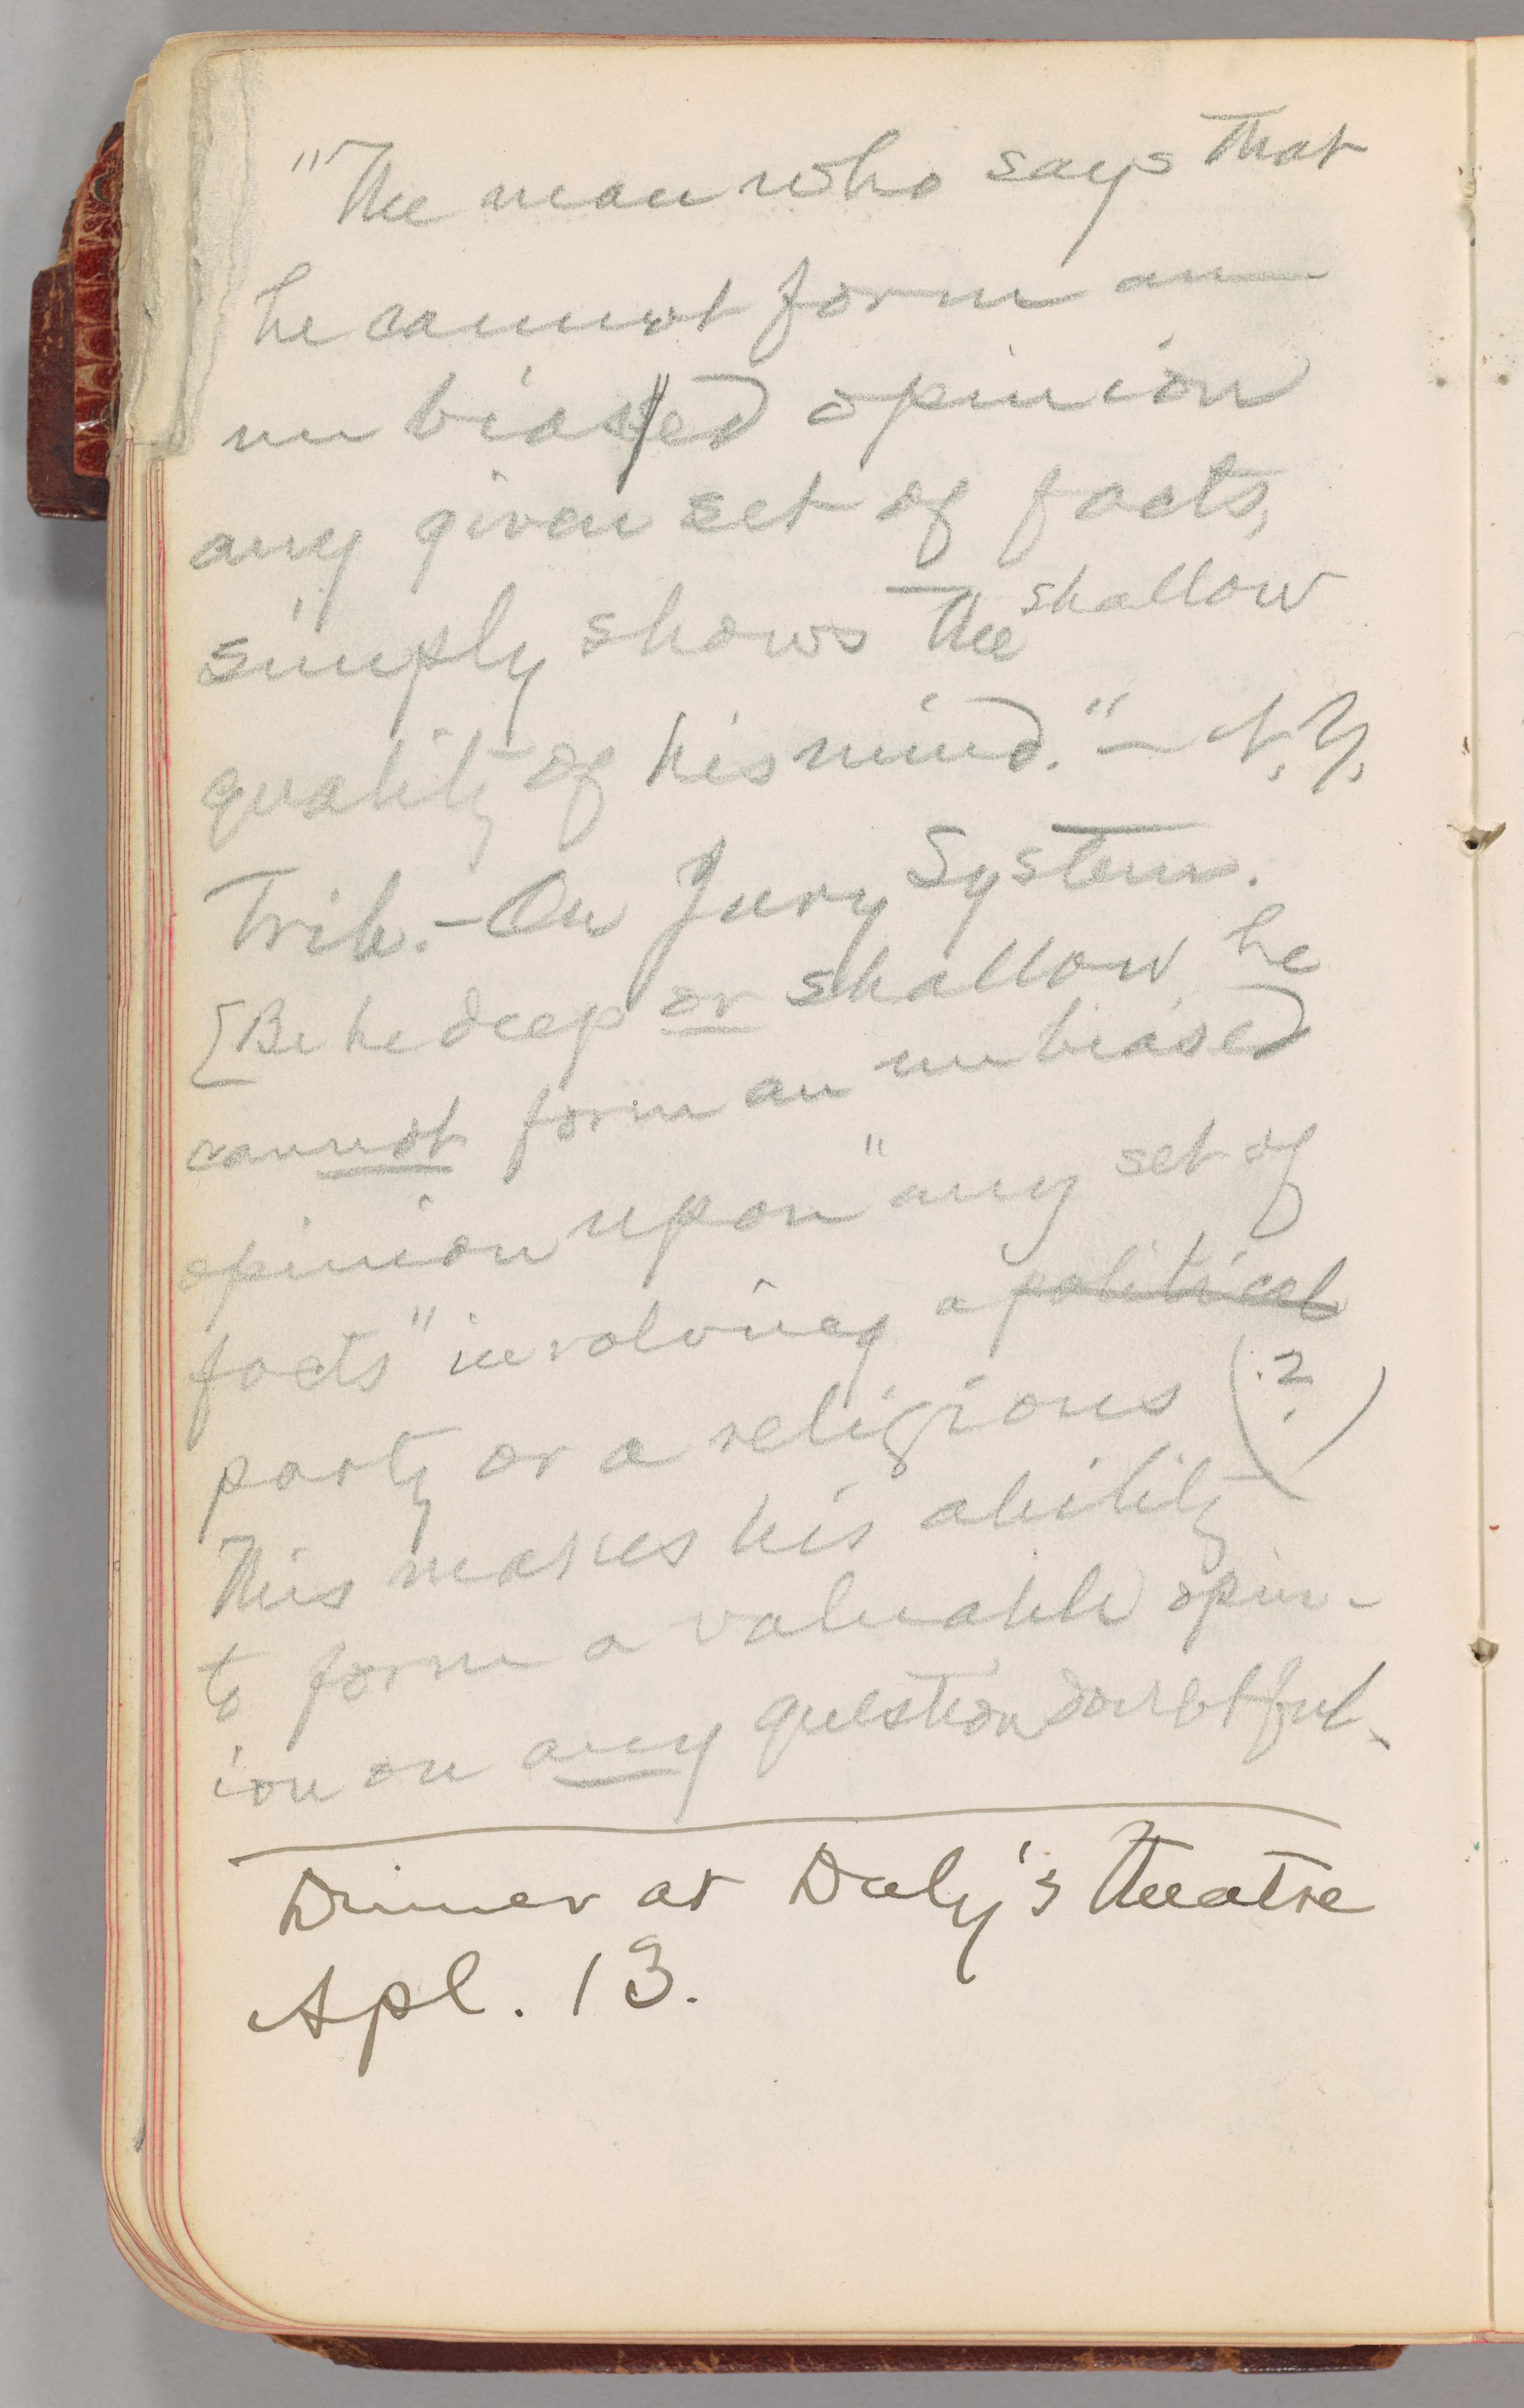 "The man who says that
he cannot form an
unbiassed opinion
any given set of facts,
simply shows the shallow
quality of his mind."—N.Y.
Trib.—On Jury System.
[Be he deep or shallow he
cannot form an unbiased
opinion upon "any set of
facts" involving a political
party or a religious (?)
This makes his ability
to form a valuable opin-
ion on any question doubtful.
Dinner at Daly's Theatre
Apl. 13.